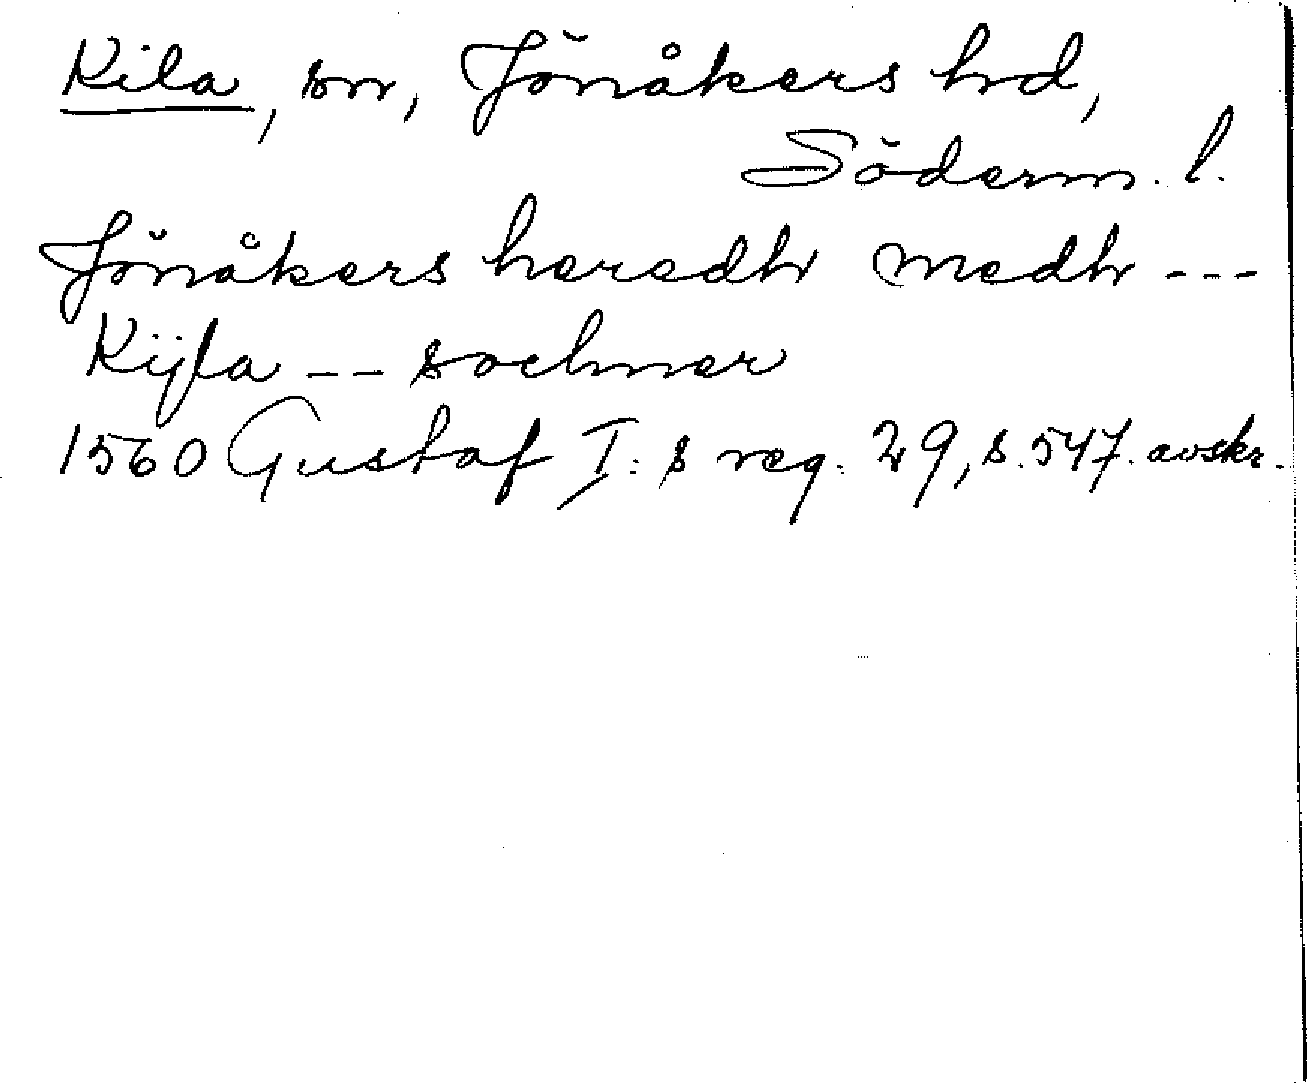 Kila, sn, Jönåkers hd,
Söderm. l.
Jönåkers heredh medh ---
Kijla -- sochner
1560 Gustaf I:s reg. 29, s. 547. avskr.